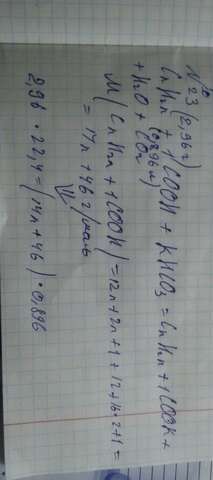 №23 (2,96г)
CnH2n + 1COOH + KHCO3 = CnH2n + 1COOK +
(0,896л)
+ H2O + CO2
M(CnH2n + 1COOH) = 12n + 2n + 1 + 12 + 16·2 + 1 =
= 14n + 46 г/моль
⇓
2,96 · 22,4 = (14n + 46) · 0,896